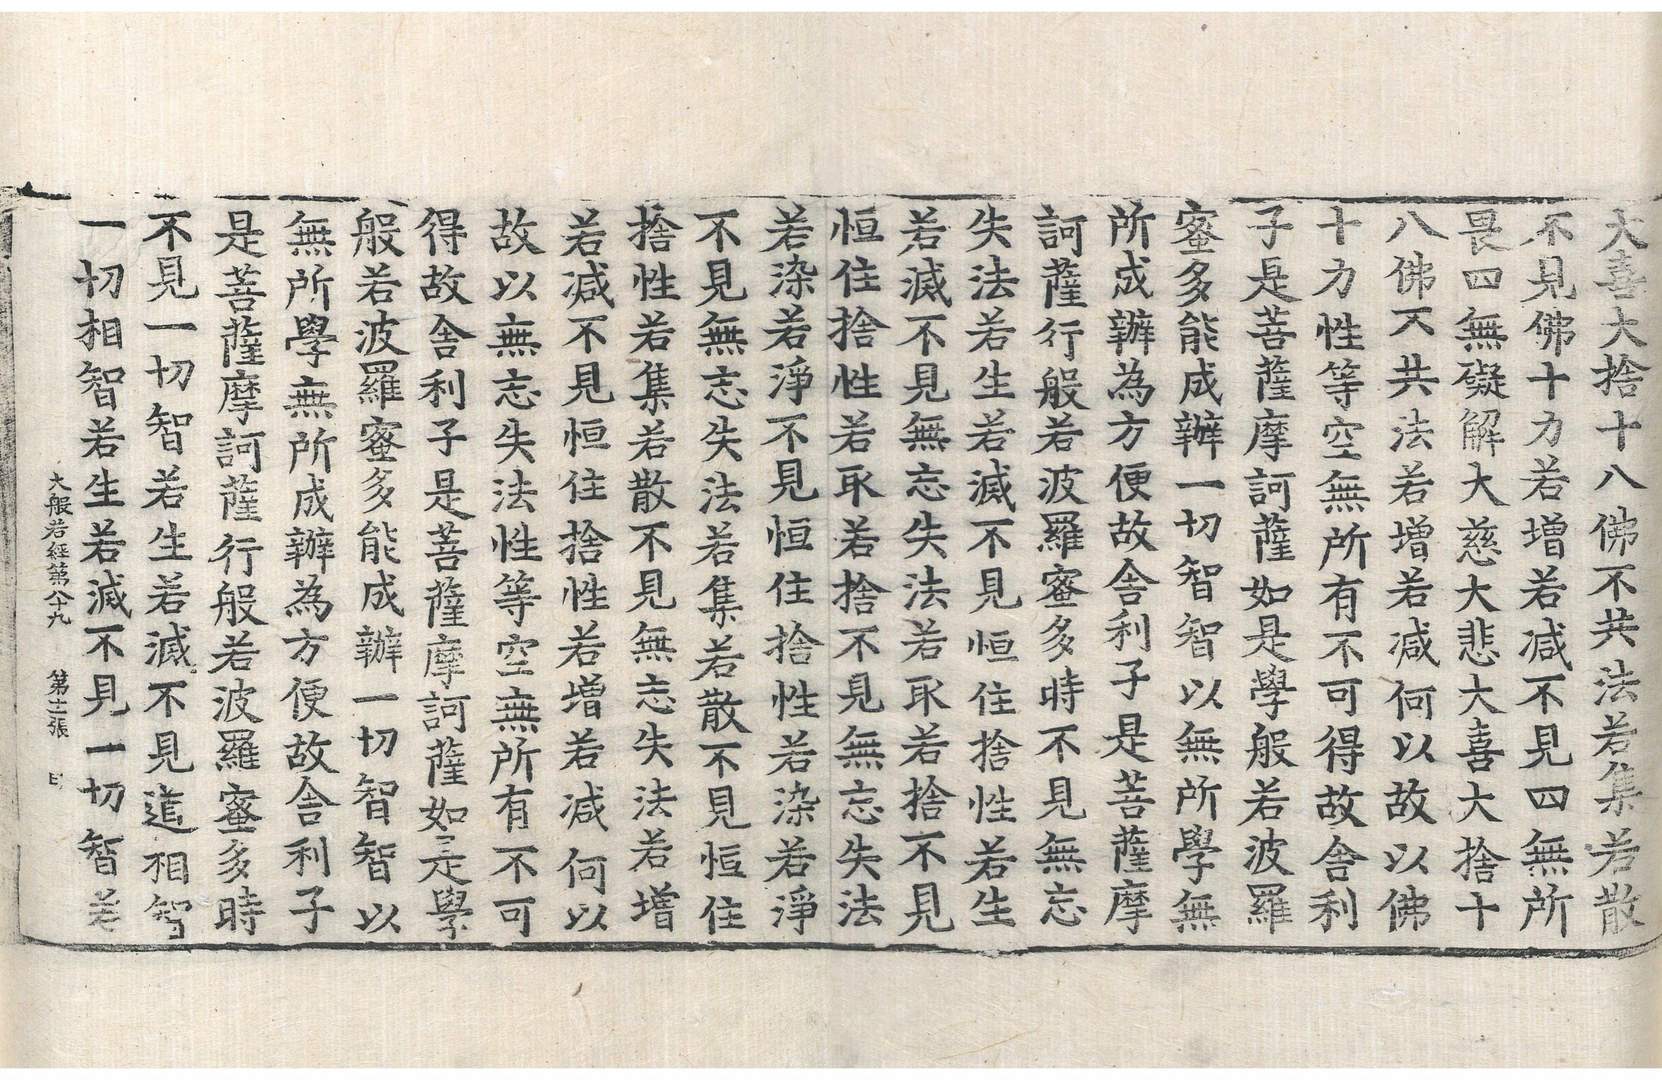 大喜大捨十八佛不共法若集若散
不見佛十力若增若減不見四無所
畏四無礙解大慈大悲大喜大捨十
八佛不共法若增若減何以故以佛
十力性等空無所有不可得故舍利
子是菩薩摩訶薩如是學般若波羅
蜜多能成辦一切智智以無所學無
所成辦為方便故舍利子是菩薩摩
訶薩行般若波羅蜜多時不見無忘
失法若生若滅不見恒住捨性若生
若滅不見無忘失法若取若捨不見
恒住捨性若取若捨不見無忘失法
若染若淨不見恒住捨性若染若淨
不見無忘失法若集若散不見恒住
捨性若集若散不見無忘失法若增
若減不見恒住捨性若增若減何以
故以無忘失法性等空無所有不可
得故舍利子是菩薩摩訶薩如是學
般若波羅蜜多能成辦一切智智以
無所學無所成辦為方便故舍利子
是菩薩摩訶薩行般若波羅蜜多時
不見一切智若生若滅不見道相智
一切相智若生若滅不見一切智若
大般若經第八十九 第十二張